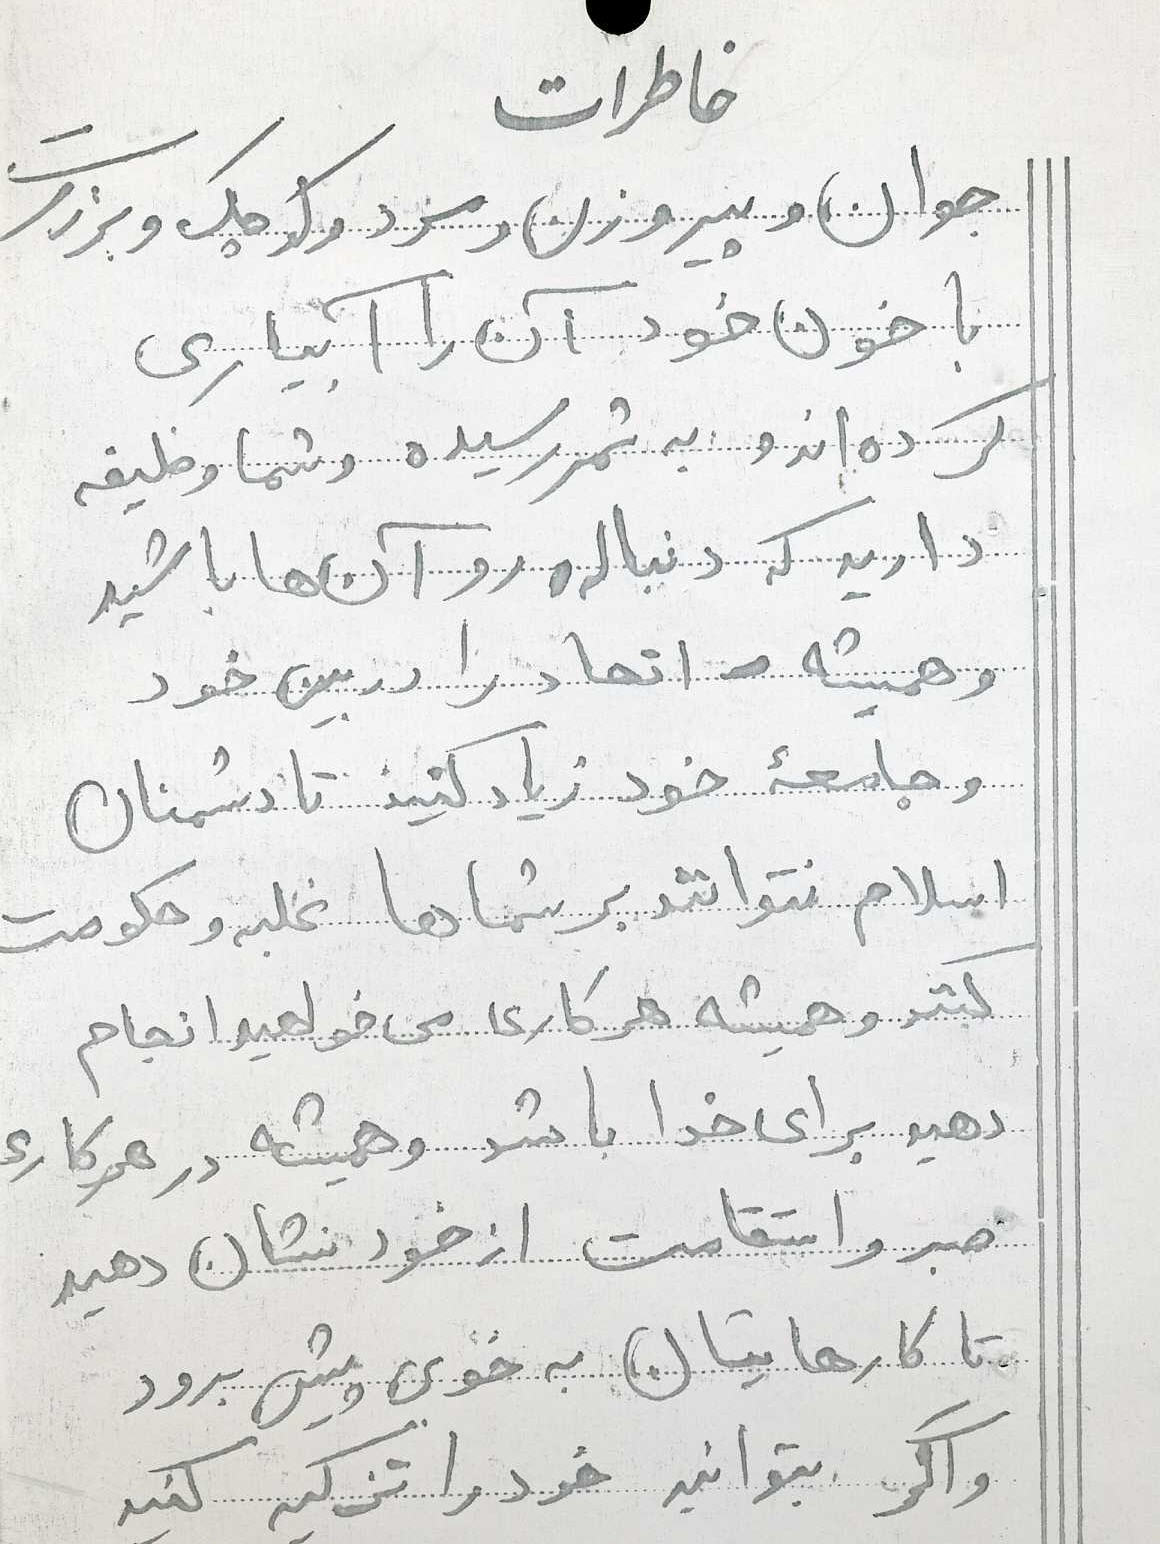 خاطرات
جوان و پیر و زن و مرد و کوچک و بزرگ است
با خون خود آن را آبیاری
کرده‌اند و به ثمر رسیده و شما وظیفه
دارید که دنباله‌رو آن‌ها باشید
و همیشه اتحاد را در بین خود
و جامعهٔ خود زیاد کنید تا دشمنان
اسلام نتوانند بر شماها غلبه و حکومت
کنند و همیشه هر کاری می‌خواهید انجام
دهید برای خدا باشد و همیشه در هر کاری
صبر و استقامت از خود نشان دهید
تا کارهایتان به خوبی پیش برود
و اگر بتوانید خود را تزکیه کنید